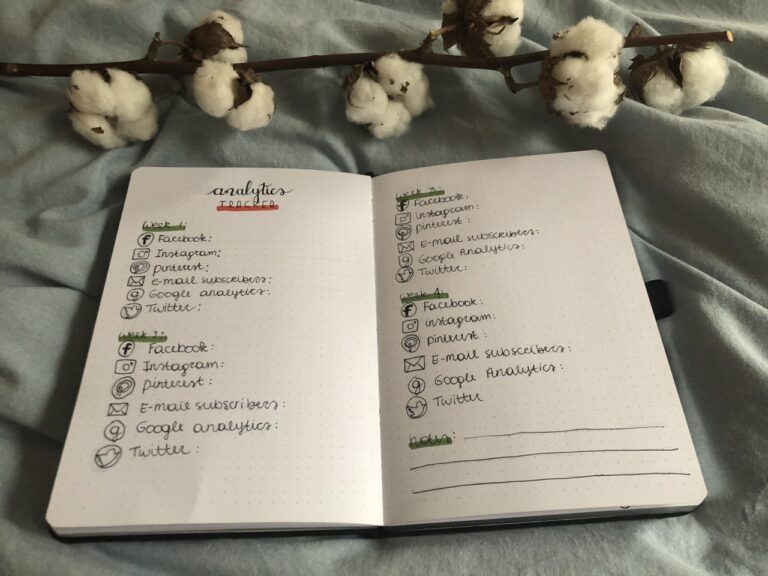 analytics
TRACKER
Week 1:
Facebook:
Instagram:
pinterest:
e-mail subscribers:
Google analytics:
Twitter:
Week 2:
Facebook:
Instagram:
pinterest:
E-mail subscribers:
Google analytics:
Twitter:
Week 3:
Facebook:
instagram:
pinterest:
E-mail subscribers:
Google Analytics:
Twitter:
Week 4:
Facebook:
instagram:
pinterest:
E-mail subscribers:
Google Analytics:
Twitter
notes: